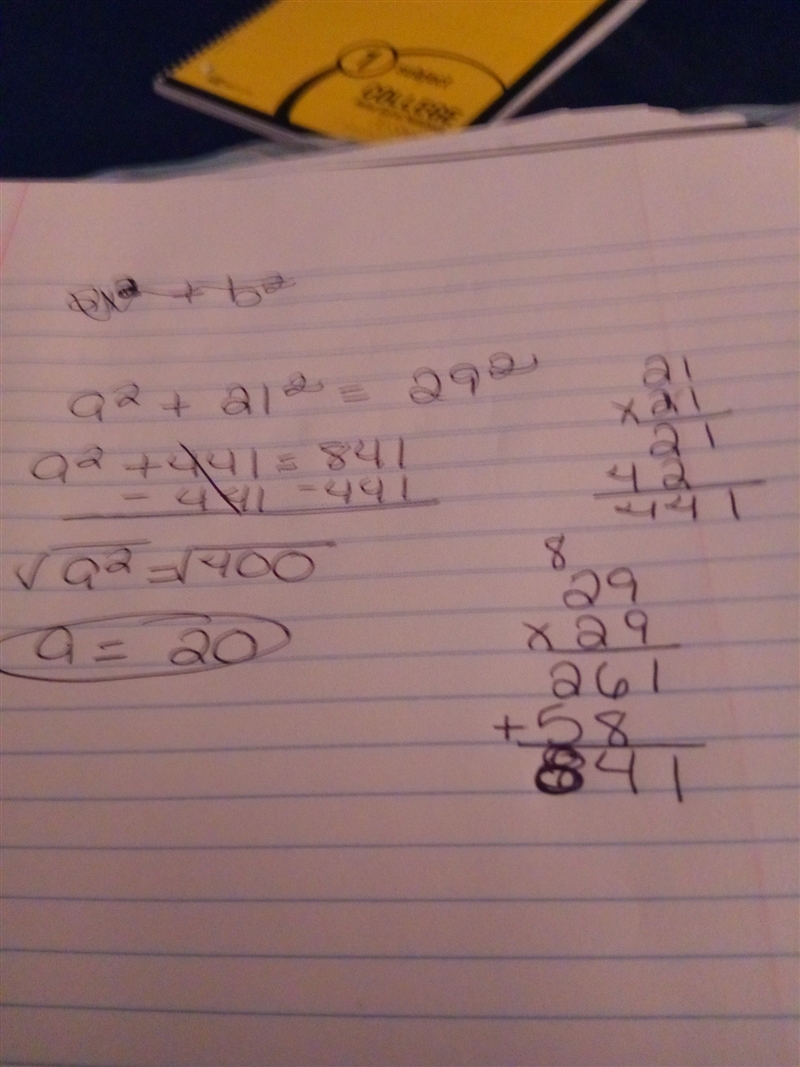 1 subject
COLLEGE
a² + b²
a² + 21² = 29²
a² + 441 = 841
- 441 -441
√a² = √400
a = 20
21
x 21
21
42
441
8
29
x 29
261
+ 58
841